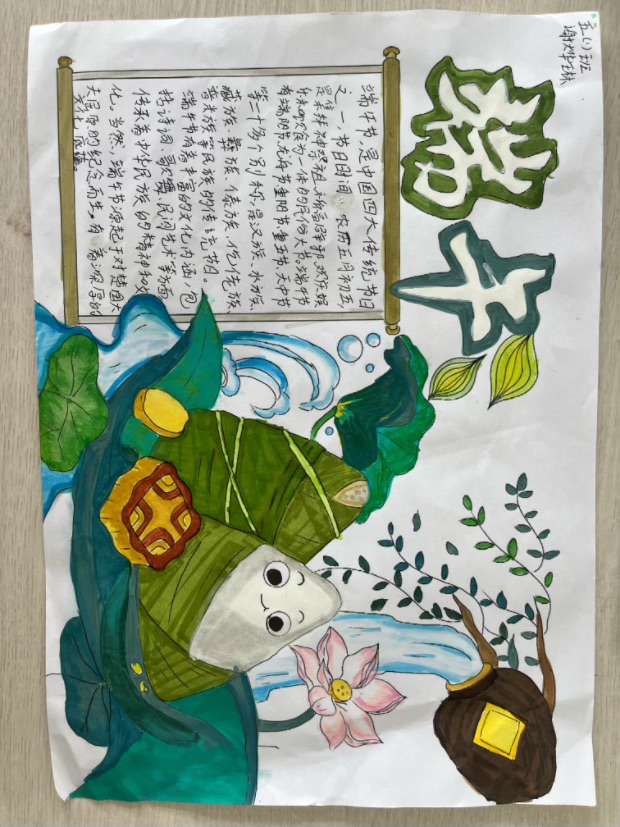 五(1)班
端午
端午节,是中国四大传统节日
之一,节日时间:农历五月初五,
是集拜神祭祖、祈福辟邪、欢庆娱
乐和饮食为一体的民俗大节。端午节
有端阳节、龙舟节、重午节、重五节、天中节
等二十多个别称,是汉族、水族、
藏族、彝族、傣族、仡佬族、
普米族等民族的传统节日。
端午节有着丰富的文化内涵,包
括诗词、歌赋、民间艺术等方面,
传承着中华民族的精神和文
化。当然,端午节源起于对楚国大
夫屈原的纪念而生,有着深厚的
文化底蕴。